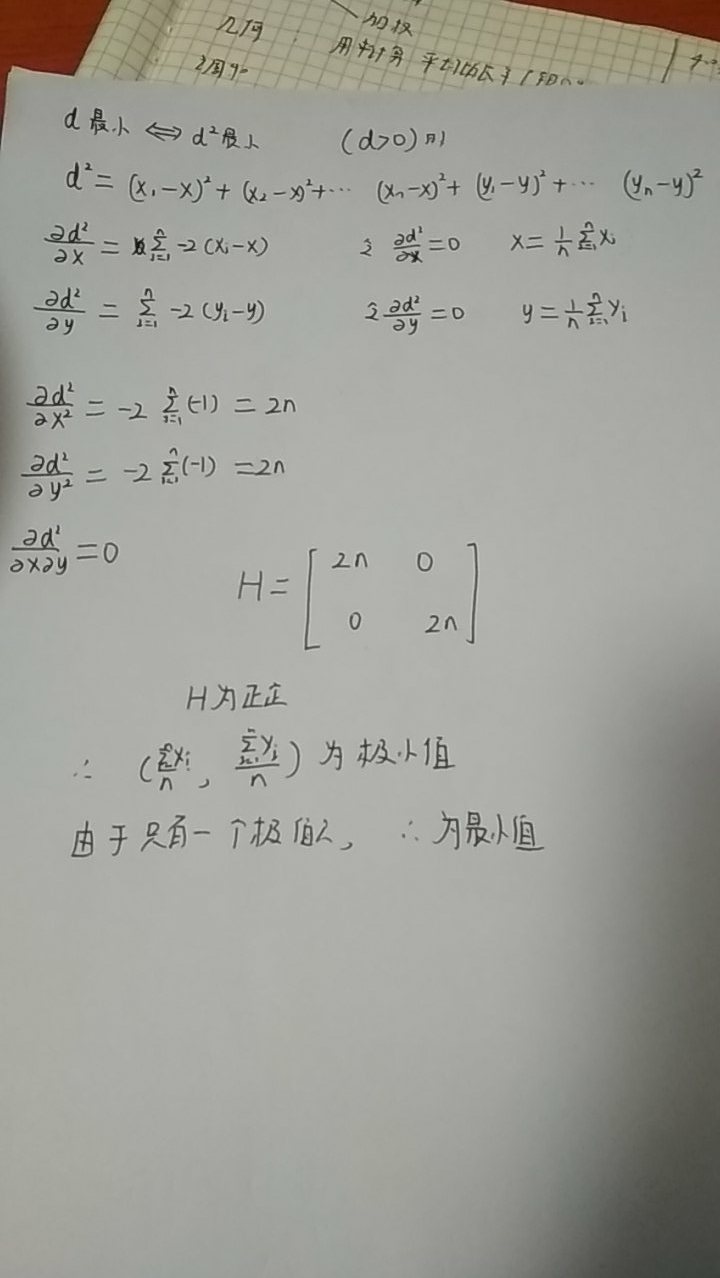 几何
加权
d 最小 ⟺ d²最小 (d>0)时
d² = (x₁-x)² + (x₂-x)² + ⋯ (xₙ-x)² + (y₁-y)² + ⋯ (yₙ-y)²
∂d²/∂x = ∑ᵢ₌₁ⁿ -2(xᵢ-x) 令 ∂d²/∂x = 0 x = 1/n ∑ᵢ₌₁ⁿ xᵢ
∂d²/∂y = ∑ᵢ₌₁ⁿ -2(yᵢ-y) 令 ∂d²/∂y = 0 y = 1/n ∑ᵢ₌₁ⁿ yᵢ
∂d²/∂x² = -2 ∑ᵢ₌₁ⁿ (-1) = 2n
∂d²/∂y² = -2 ∑ᵢ₌₁ⁿ (-1) = 2n
∂d²/∂x∂y = 0
H = [2n 0
0 2n]
H为正定
∴ (∑ᵢ₌₁ⁿ xᵢ/n, ∑ᵢ₌₁ⁿ yᵢ/n) 为极小值
由于只有一个极值, ∴ 为最小值